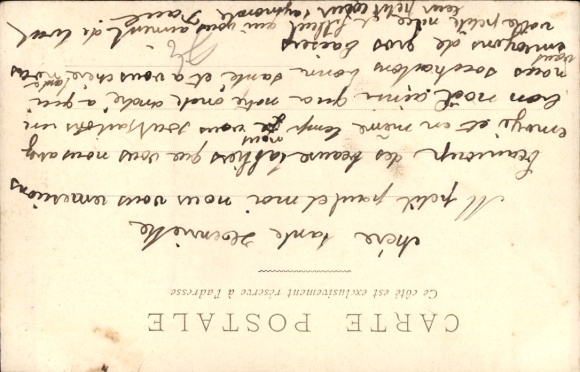 CARTE POSTALE
Ce côté est exclusivement réservé à l'adresse
chère tante Henriette
M petit paul et moi nous vous remersions
beaucoup des beaux tabliers que vous nous avez
envoyé et en même temp nous vous souhaitons un
bon noël ainsi qua notre oncle andré a qui
nous souhaitons bonne santé et a vous chère tante nous
vous
envoyons de gros baisers
votre petite nièce et filleul qui vous aiment de tout
leur petit cœur raymonde Paul